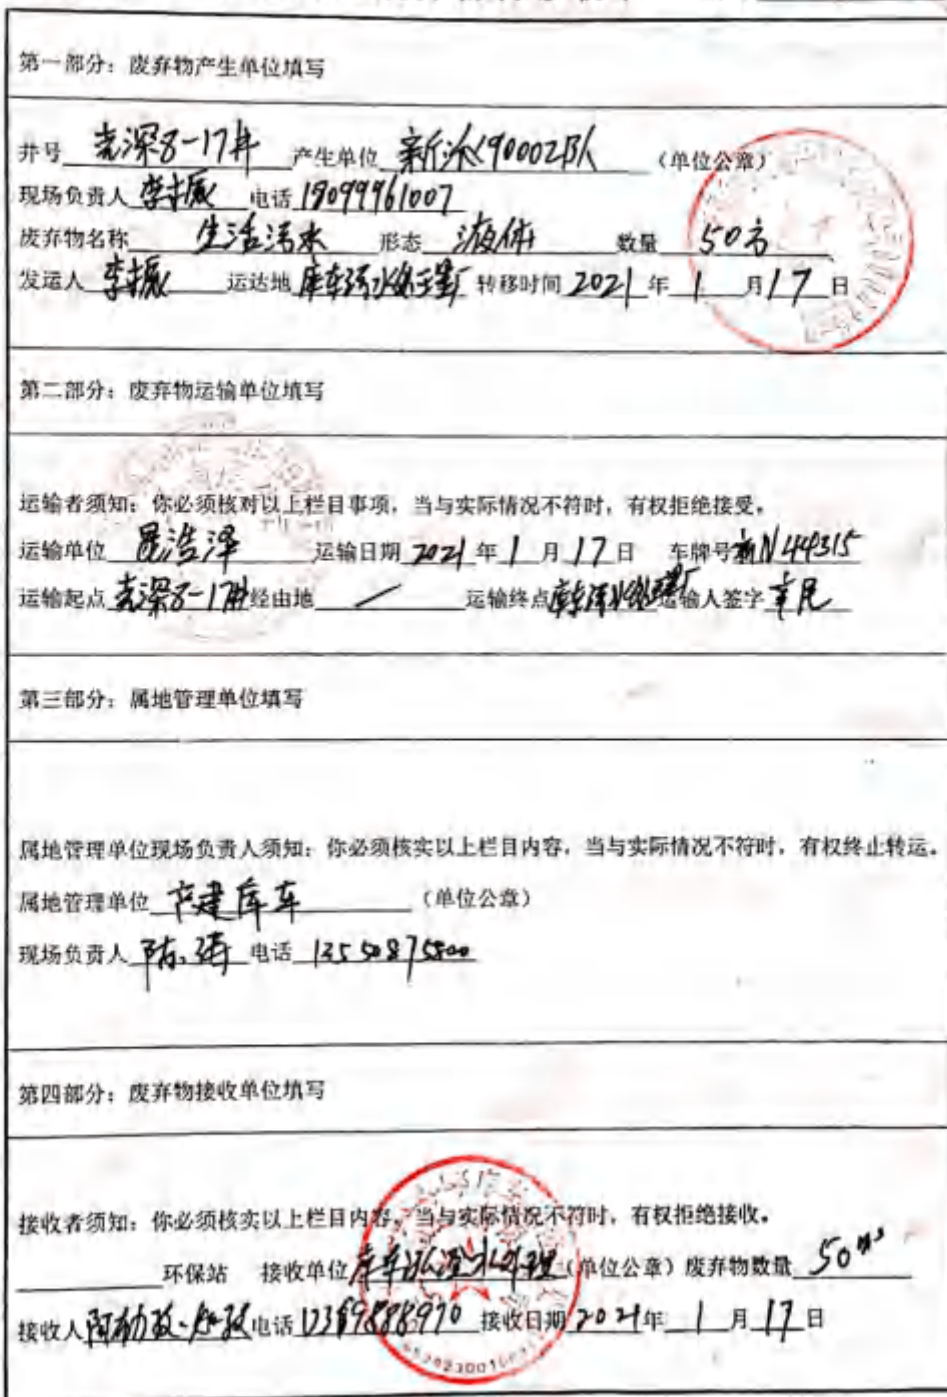 第一部分：废弃物产生单位填写
井号 克深8-17井 产生单位 90002队 （单位公章）
现场负责人 李振 电话 19099961007
废弃物名称 生活污水 形态 液体 数量 50方
发运人 李振 运达地 库车污水处理厂 转移时间 2021 年 1 月 17 日
第二部分：废弃物运输单位填写
运输者须知：你必须核对以上栏目事项，当与实际情况不符时，有权拒绝接受。
运输单位 昆浩泽 运输日期 2021 年 1 月 17 日 车牌号 新N44315
运输起点 克深8-17井 经由地 / 运输终点 运输人签字
第三部分：属地管理单位填写
属地管理单位现场负责人须知：你必须核实以上栏目内容，当与实际情况不符时，有权终止转运。
属地管理单位 产建库车 （单位公章）
现场负责人 陈涛 电话 13550875800
第四部分：废弃物接收单位填写
接收者须知：你必须核实以上栏目内容，当与实际情况不符时，有权拒绝接收。
环保站 接收单位 库车 水处理 （单位公章）废弃物数量 50m³
接收人 电话 接收日期 2021 年 1 月 17 日